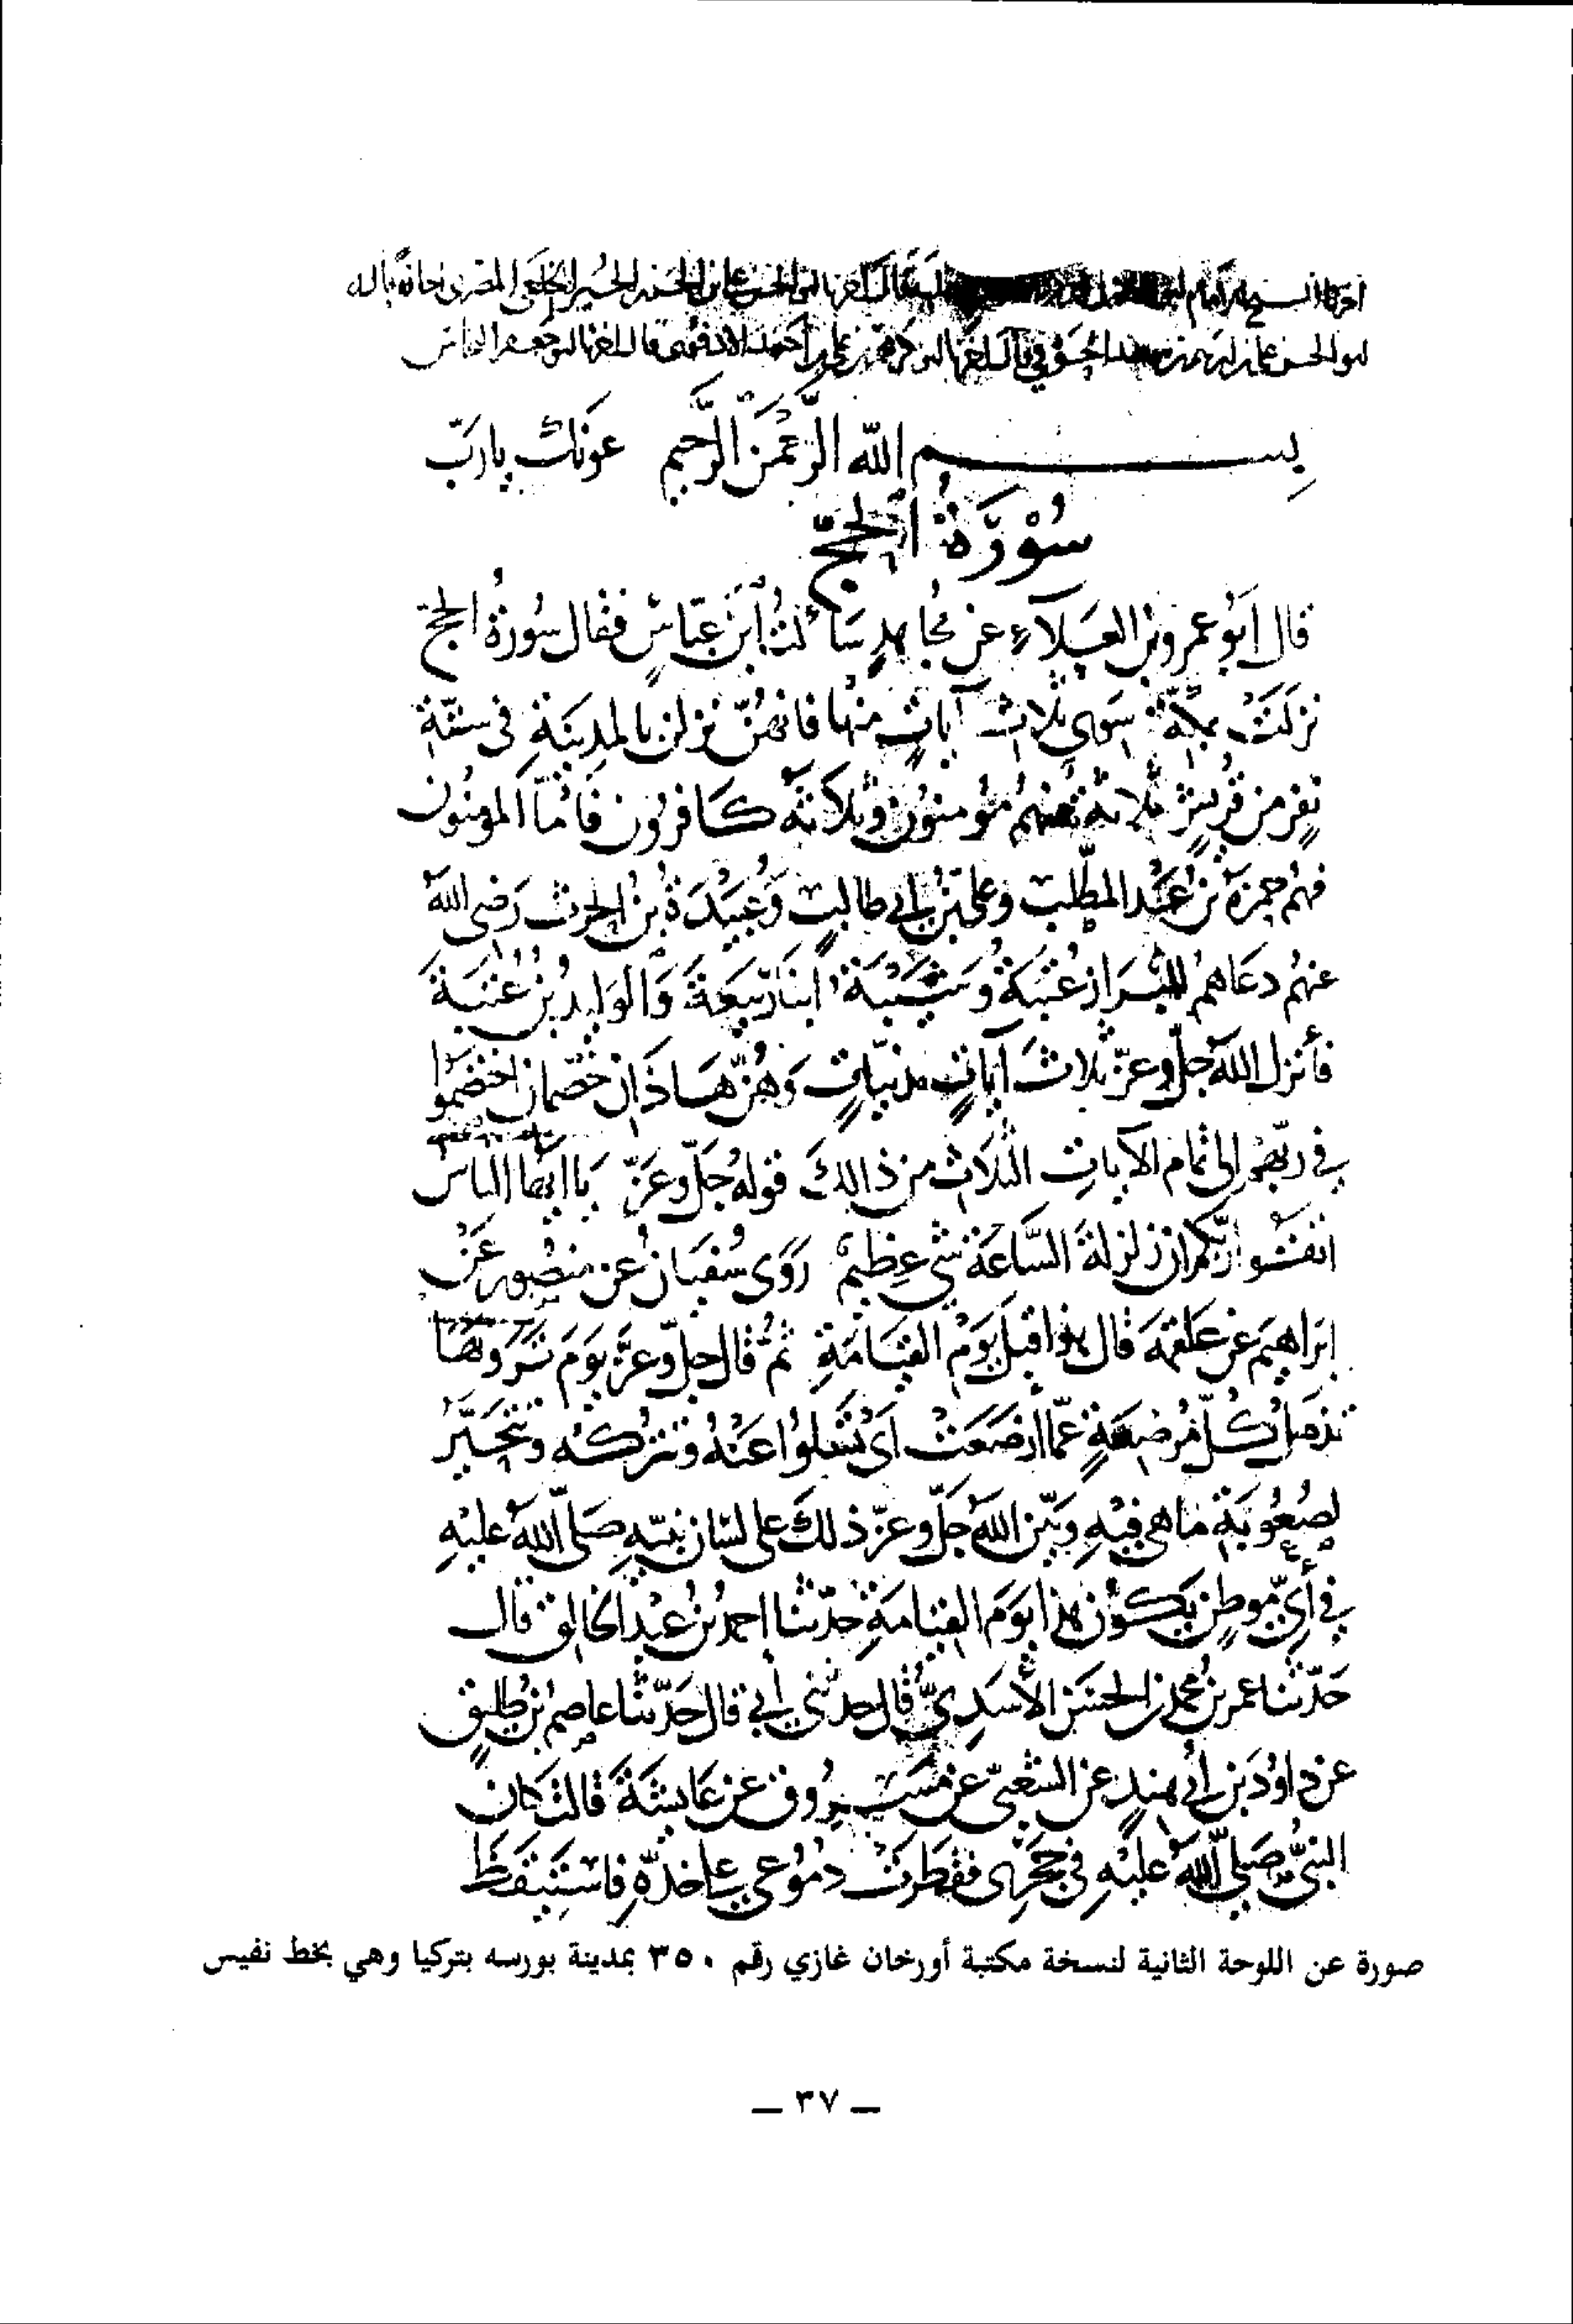 ابو الحسن علي بن ابرهيم بن سعيد الحوفي قال اخبرنا ابو بكر محمد بن علي بن احمد الادفوي قال اخبرنا ابو جعفر النحاس
بسم الله الرَّحْمَنِ الرَّحِيمِ عَونَكَ يارَبّ
سُوْرَةُ الحَجّ
قال أبُو عمرو بن العَلَاءِ عن مُجاهدٍ سَألتُ ابنَ عبّاسٍ فقال سُورةُ الحجّ
نزلَتْ بمكّة سِوَى ثَلاثِ آياتٍ منْها فانهُنّ نزلن بالمدِينَةِ في ستّةِ
نفرٍ من قُريشٍ ثلاثةٌ منهُم مؤمنُون وثلاثَةٌ كافرُون فَأمّا المؤمنُون
فهُم حمزةُ بنُ عَبْد المطّلب وعليُّ بنُ ابي طالبٍ وَعُبَيْدَةُ بن الحرث رَضِي اللهُ
عنهُم دعَاهُم للبِرَازِ عُتْبَةُ وَشَيْبَةُ ابنَا رَبيعَةَ وَالوَليدُ بنُ عُتْبَةَ
فأنزل اللهُ جلّ وعزّ ثلاثَ آياتٍ مدنيّاتٍ وَهُنّ هَاذَانِ خَصْمانِ اختصَمُوا
في ربّهِمْ إلى تمام الآياتِ الثلَاثِ من ذالكَ قولُهُ جَلّ وعَزّ يَا ايّها النّاس
اتّقُوا ربّكم ان زلزلةَ السَّاعَة شيءٌ عظِيمٌ رَوَى سُفيَانُ عن منصُورٍ عَنْ
إبرَاهيمَ عن عَلقمَة قال هذا قبلَ يَوْمِ القيَامَةِ ثُمّ قال جلّ وعزّ يَومَ تَرَوْنَهَا
تذهلُ كُلّ مُرْضِعَةٍ عمّا أرْضَعَتْ أيْ تسْلُوا عَنْهُ وتترُكُه وتتحَيَّرُ
لصُعُوبَةِ مَا هي فيْهِ وَبَيّنَ اللهُ جَلّ وعزّ ذلكَ على لسَان نبيّهِ صَلّى اللهُ عليْهِ
في أيّ مَوطِنٍ يَكُوْن هذا يوَمَ القيَامَةِ حَدّثنَا احمدُ بنُ عَبْد الخالِق قال
حَدّثنَا عمر بنُ محمد بن الحسَن الأسَدِيُّ قال حدّثني أبي قال حَدّثنَا عَاصِمُ بنُ طليقٍ
عن داوُدَ بن أبي هِندٍ عن الشعبيّ عن مَسْرُوق عن عَايِشَةَ قَالت كان
النّبيُّ صَلى اللهُ عليْهِ في حِجْرِي فقطَرَتْ دمُوعي على خدّهِ فاسْتَيْقَظَ
صورة عن اللوحة الثانية لنسخة مكتبة أورخان غازي رقم ٣٥٠ بمدينة بورسه بتركيا وهي بخط نفيس
— ٣٧ —